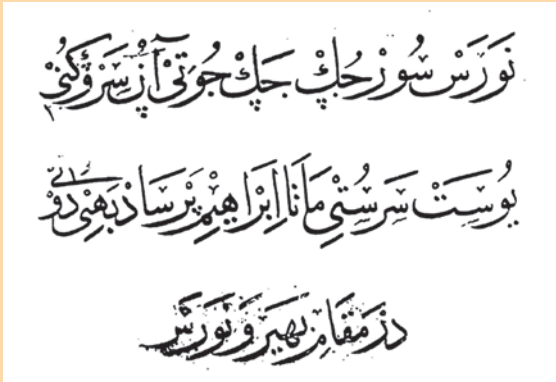 نَوَرَسْ سُوْرْ جُكْ جَكْ جُوتِيْ آنڑْ سَرْوَكُنِيْ
يُوسَتْ سَرَسُتِيْ مَاتَا اِبْرَاهِيْمْ پَرْسَادْ بَهْئِي دُوْنِي
دَرْ مَقَامِ بَهيرَوْ نَوْرَسْ